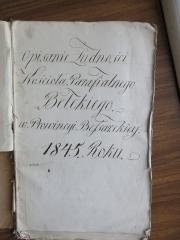 Opisanie Ludności
Kościoła Parafialnego
Beleckiego
w Prowincyi
1845. Roku.